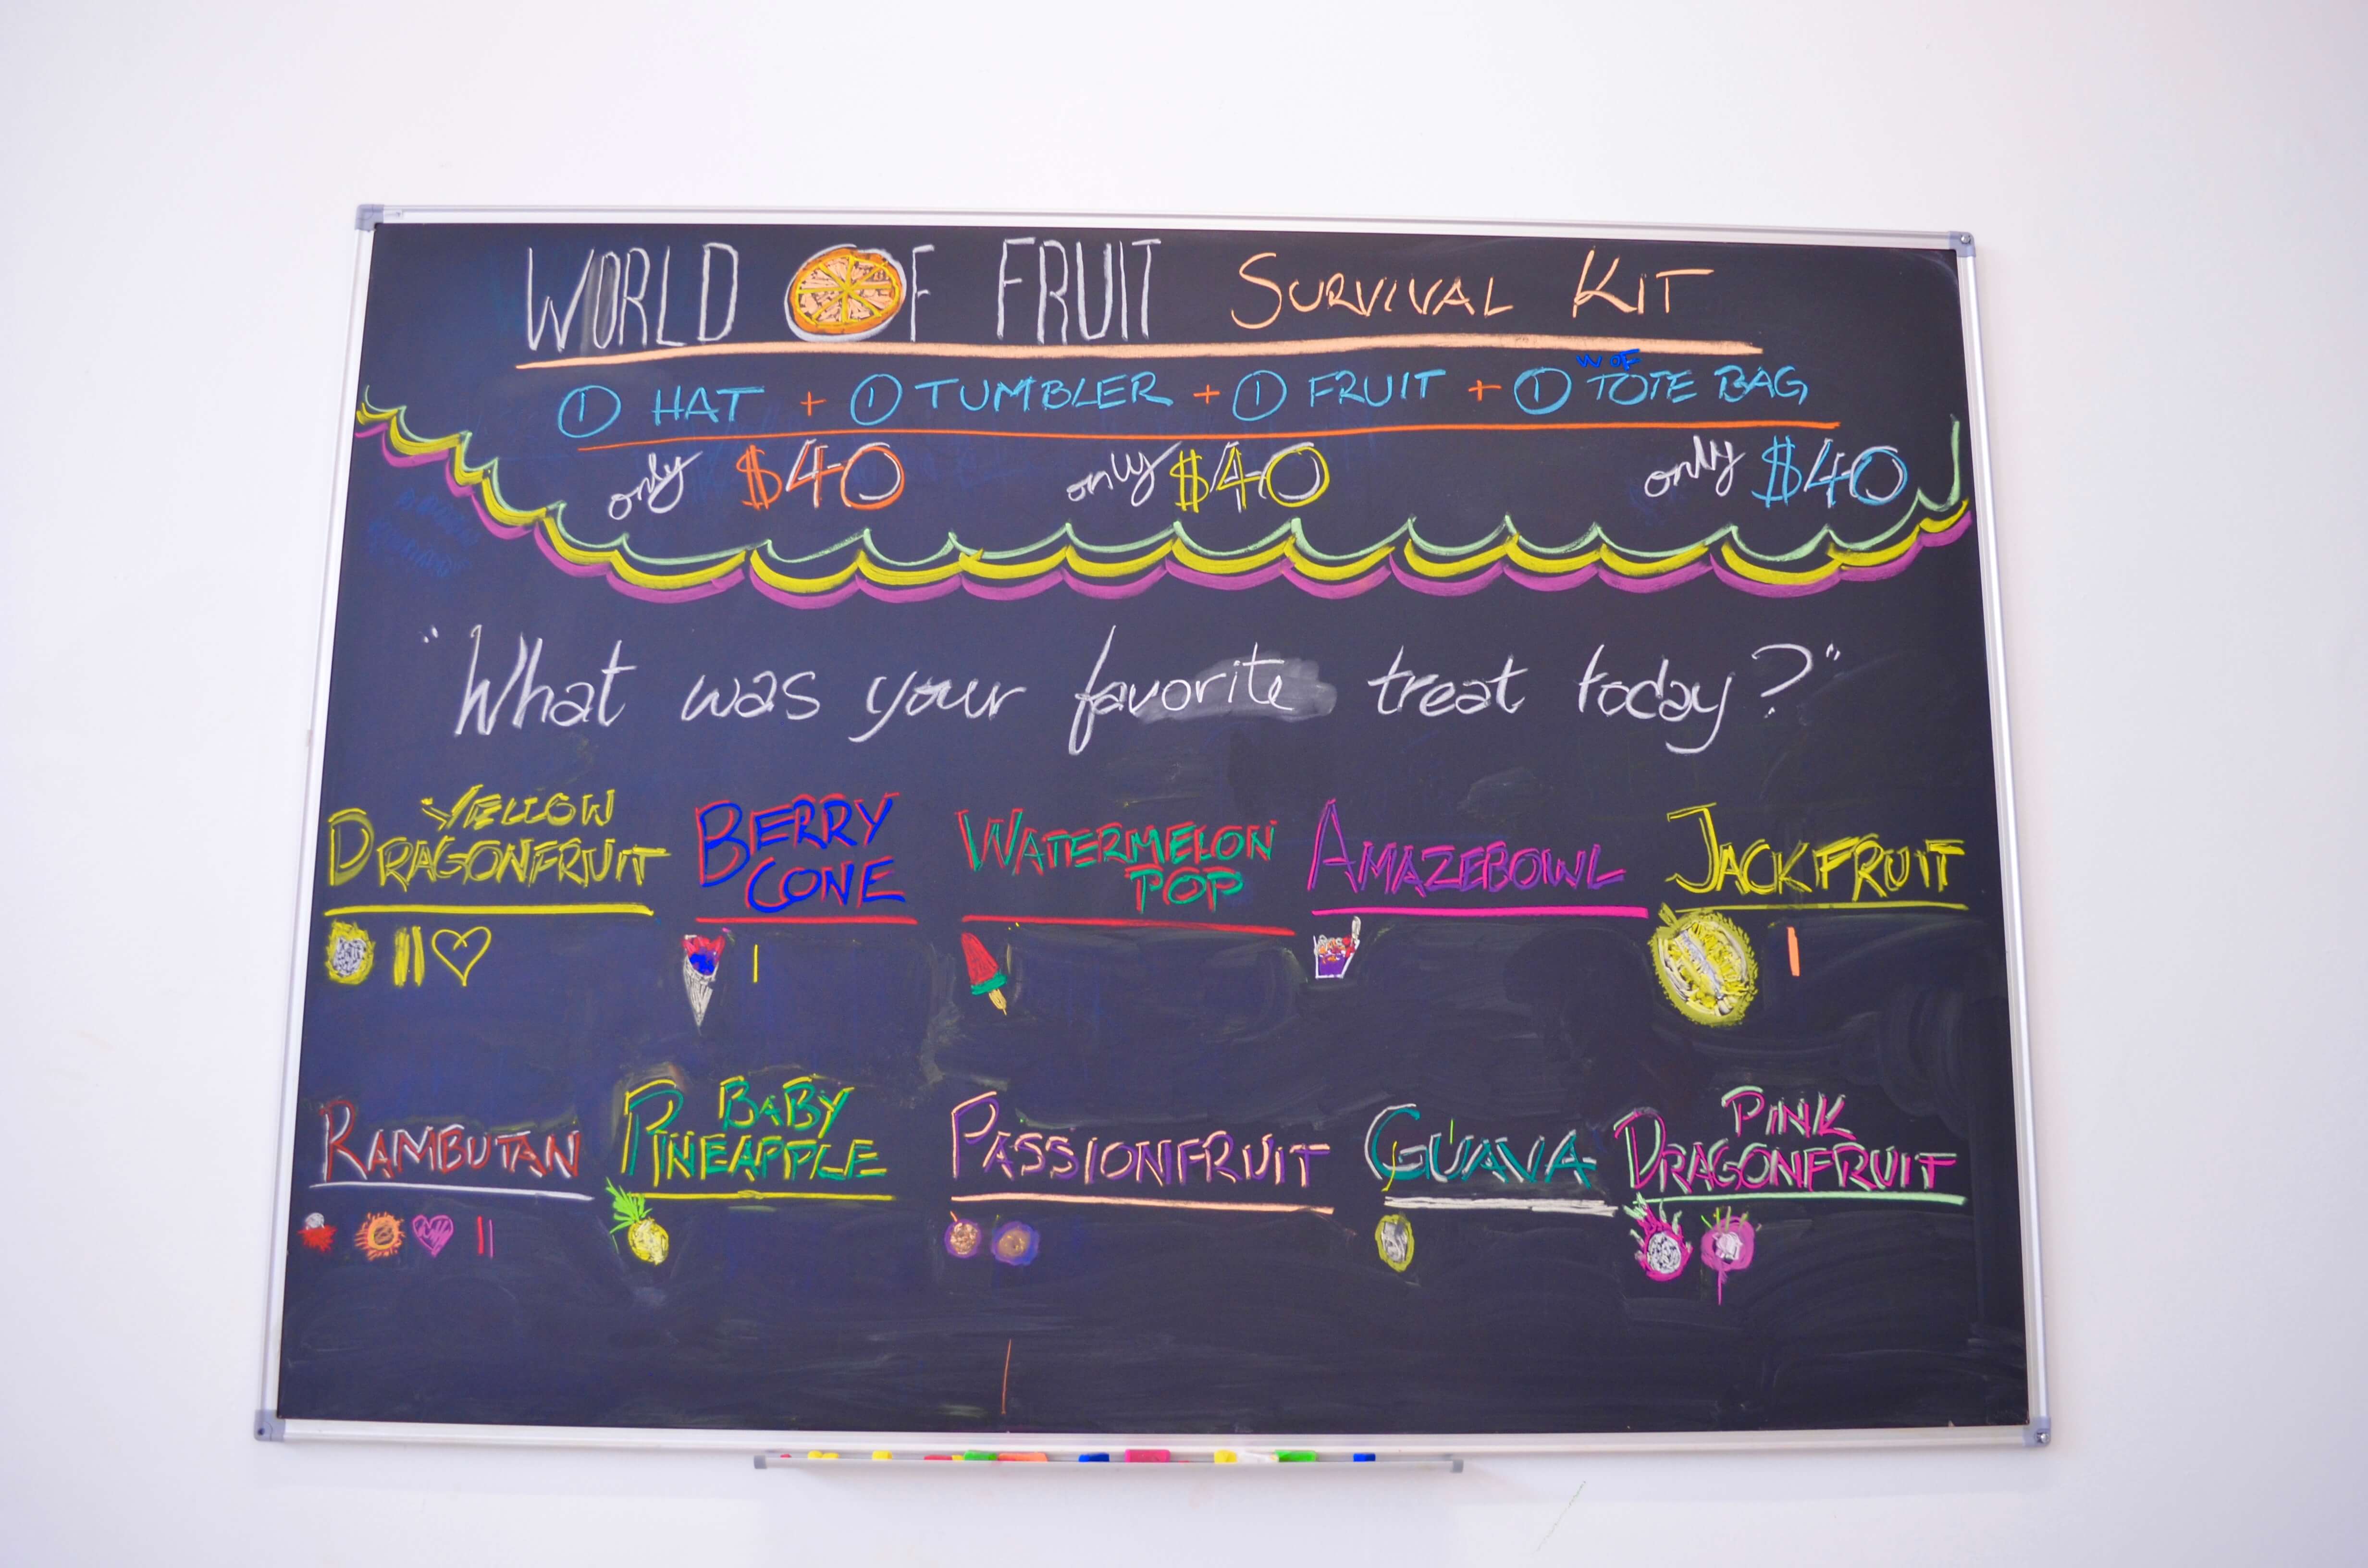 WORLD OF FRUIT SURVIVAL KIT
W OF
① HAT + ① TUMBLER + ① FRUIT + ① TOTE BAG
only $40 only $40 only $40
"What was your favorite treat today?"
YELLOW DRAGONFRUIT
BERRY CONE
WATERMELON POP
AMAZEBOWL
JACKFRUIT
RAMBUTAN
BABY PINEAPPLE
PASSIONFRUIT
GUAVA
PINK DRAGONFRUIT